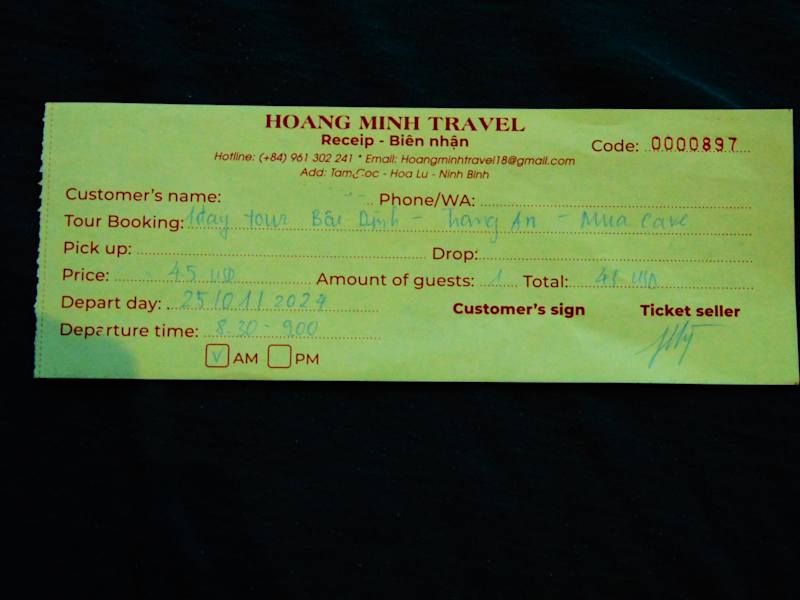 HOANG MINH TRAVEL
Receip - Biên nhận
Code: 0000897
Hotline: (+84) 961 302 241 * Email: Hoangminhtravel18@gmail.com
Add: Tam Coc - Hoa Lu - Ninh Binh
Customer's name: Phone/WA:
Tour Booking: 1day tour Bái Đính - Trang An - Mua cave
Pick up: Drop:
Price: 45 USD Amount of guests: 1 Total: 45 USD
Depart day: 25/01/2024
Customer's sign Ticket seller
Departure time: 8.30 - 9.00
AM PM